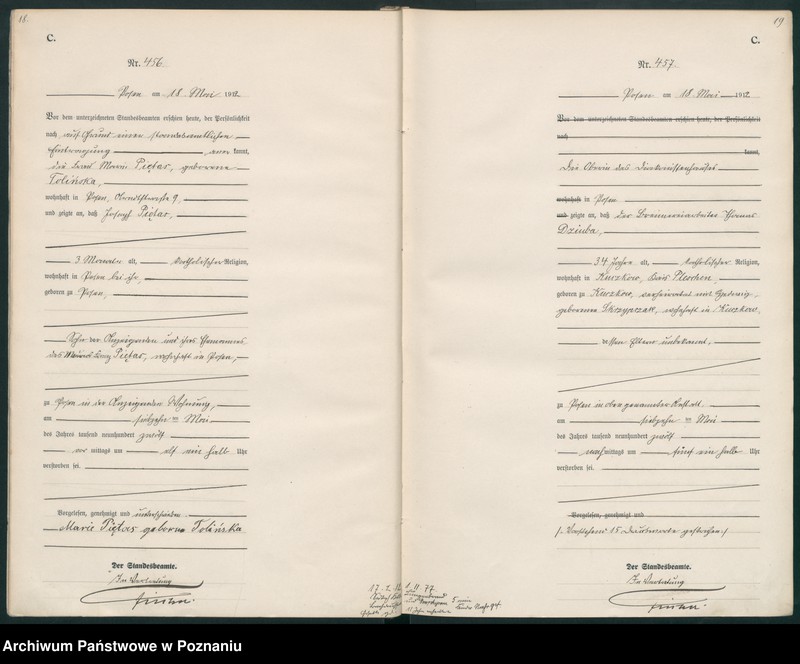 18.
C.
Nr. 456
Posen am 18. Mai 1912
Vor dem unterzeichneten Standesbeamten erschien heute, der Persönlichkeit
nach auf Grund einer standesamtlichen
kannt,
die Frau Marie Piętas, geborene
Tolińska,
wohnhaft in Posen, 9,
und zeigte an, daß Joseph Piętas,
3 Monate alt, katholischer Religion,
wohnhaft in Posen bei ihr,
geboren zu Posen,
Sohn der Anzeigenden und ihres Ehemannes
des Piętas, wohnhaft in Posen,
zu Posen in der Anzeigenden Wohnung,
am siebzehn ten Mai
des Jahres tausend neunhundert zwölf
vor mittags um elf ein halb Uhr
verstorben sei.
Vorgelesen, genehmigt und unterschrieben
Marie Piętas geborne Tolińska
Der Standesbeamte.
In Vertretung
19
C.
Nr. 457
Posen am 18. Mai 1912
Vor dem unterzeichneten Standesbeamten erschien heute, der Persönlichkeit
nach
kannt,
Die Oberin des Diakonissenhauses
wohnhaft in Posen
und zeigte an, daß der Brennereiarbeiter Thomas
Dziuba,
34 Jahre alt, katholischer Religion,
wohnhaft in Kuczkow, Kreis Pleschen,
geboren zu Kuczkow, verheiratet mit Hedwig,
geborenen Skrzypczak, wohnhaft in Kuczkow,
dessen Eltern unbekannt,
zu Posen in oben genannter Anstalt
am siebzehn ten Mai
des Jahres tausend neunhundert zwölf
nach mittags um fünf ein halb Uhr
verstorben sei.
Vorgelesen, genehmigt und
/. Vorstehend 15 Druckworte gestrichen ./
Der Standesbeamte.
In Vertretung
Archiwum Państwowe w Poznaniu